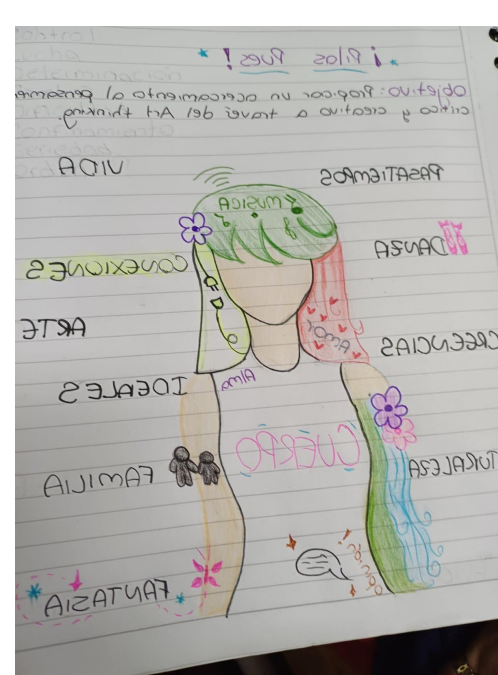 ¡Pilos Pues!
Objetivo: Propiciar un acercamiento al pensamien
crítico y creativo a través del Art thinking
PASATIEMPOS
VIDA
MUSICA
DANSA
CONEXIONES
Amor
CREENCIAS
ARTE
Alma
IDEALES
CUERPO
TURALESA
FAMILIA
FANTASIA